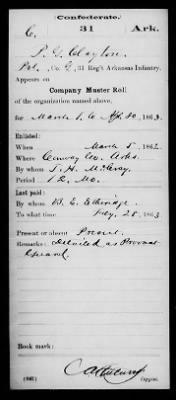 Confederate.
C. 31 Ark.
P. G. Clayton
Pvt., Co. G, 31 Reg't Arkansas Infantry.
Appears on
Company Muster Roll
of the organization named above,
for March 1, to Apr. 30, 1863.
Enlisted:
When March 5, 1862.
Where Conway Co. Arks.
By whom J. H.
Period 12 Mo.
Last paid:
By whom W. E.
To what time Feby. 28, 1863
Present or absent Present
Remarks: Detailed as Provost
Guard.
Book mark:
(642) Copyist.